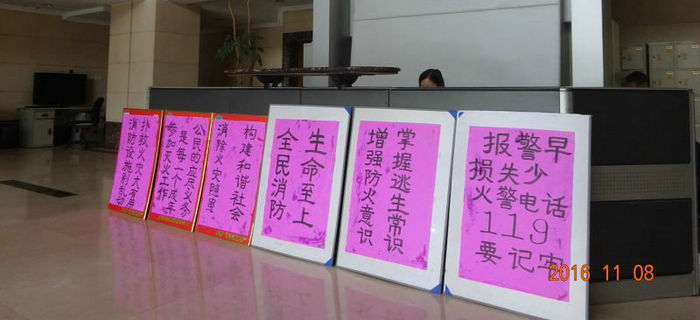 消防设施别乱动
扑救火灾大有用
参加灭火工作
是每一个成年
公民的应尽义务
消除火灾隐患
构建和谐社会
全民消防
生命至上
增强防火意识
掌握逃生常识
报警早
损失少
火警电话
119
要记牢
2016 11 08